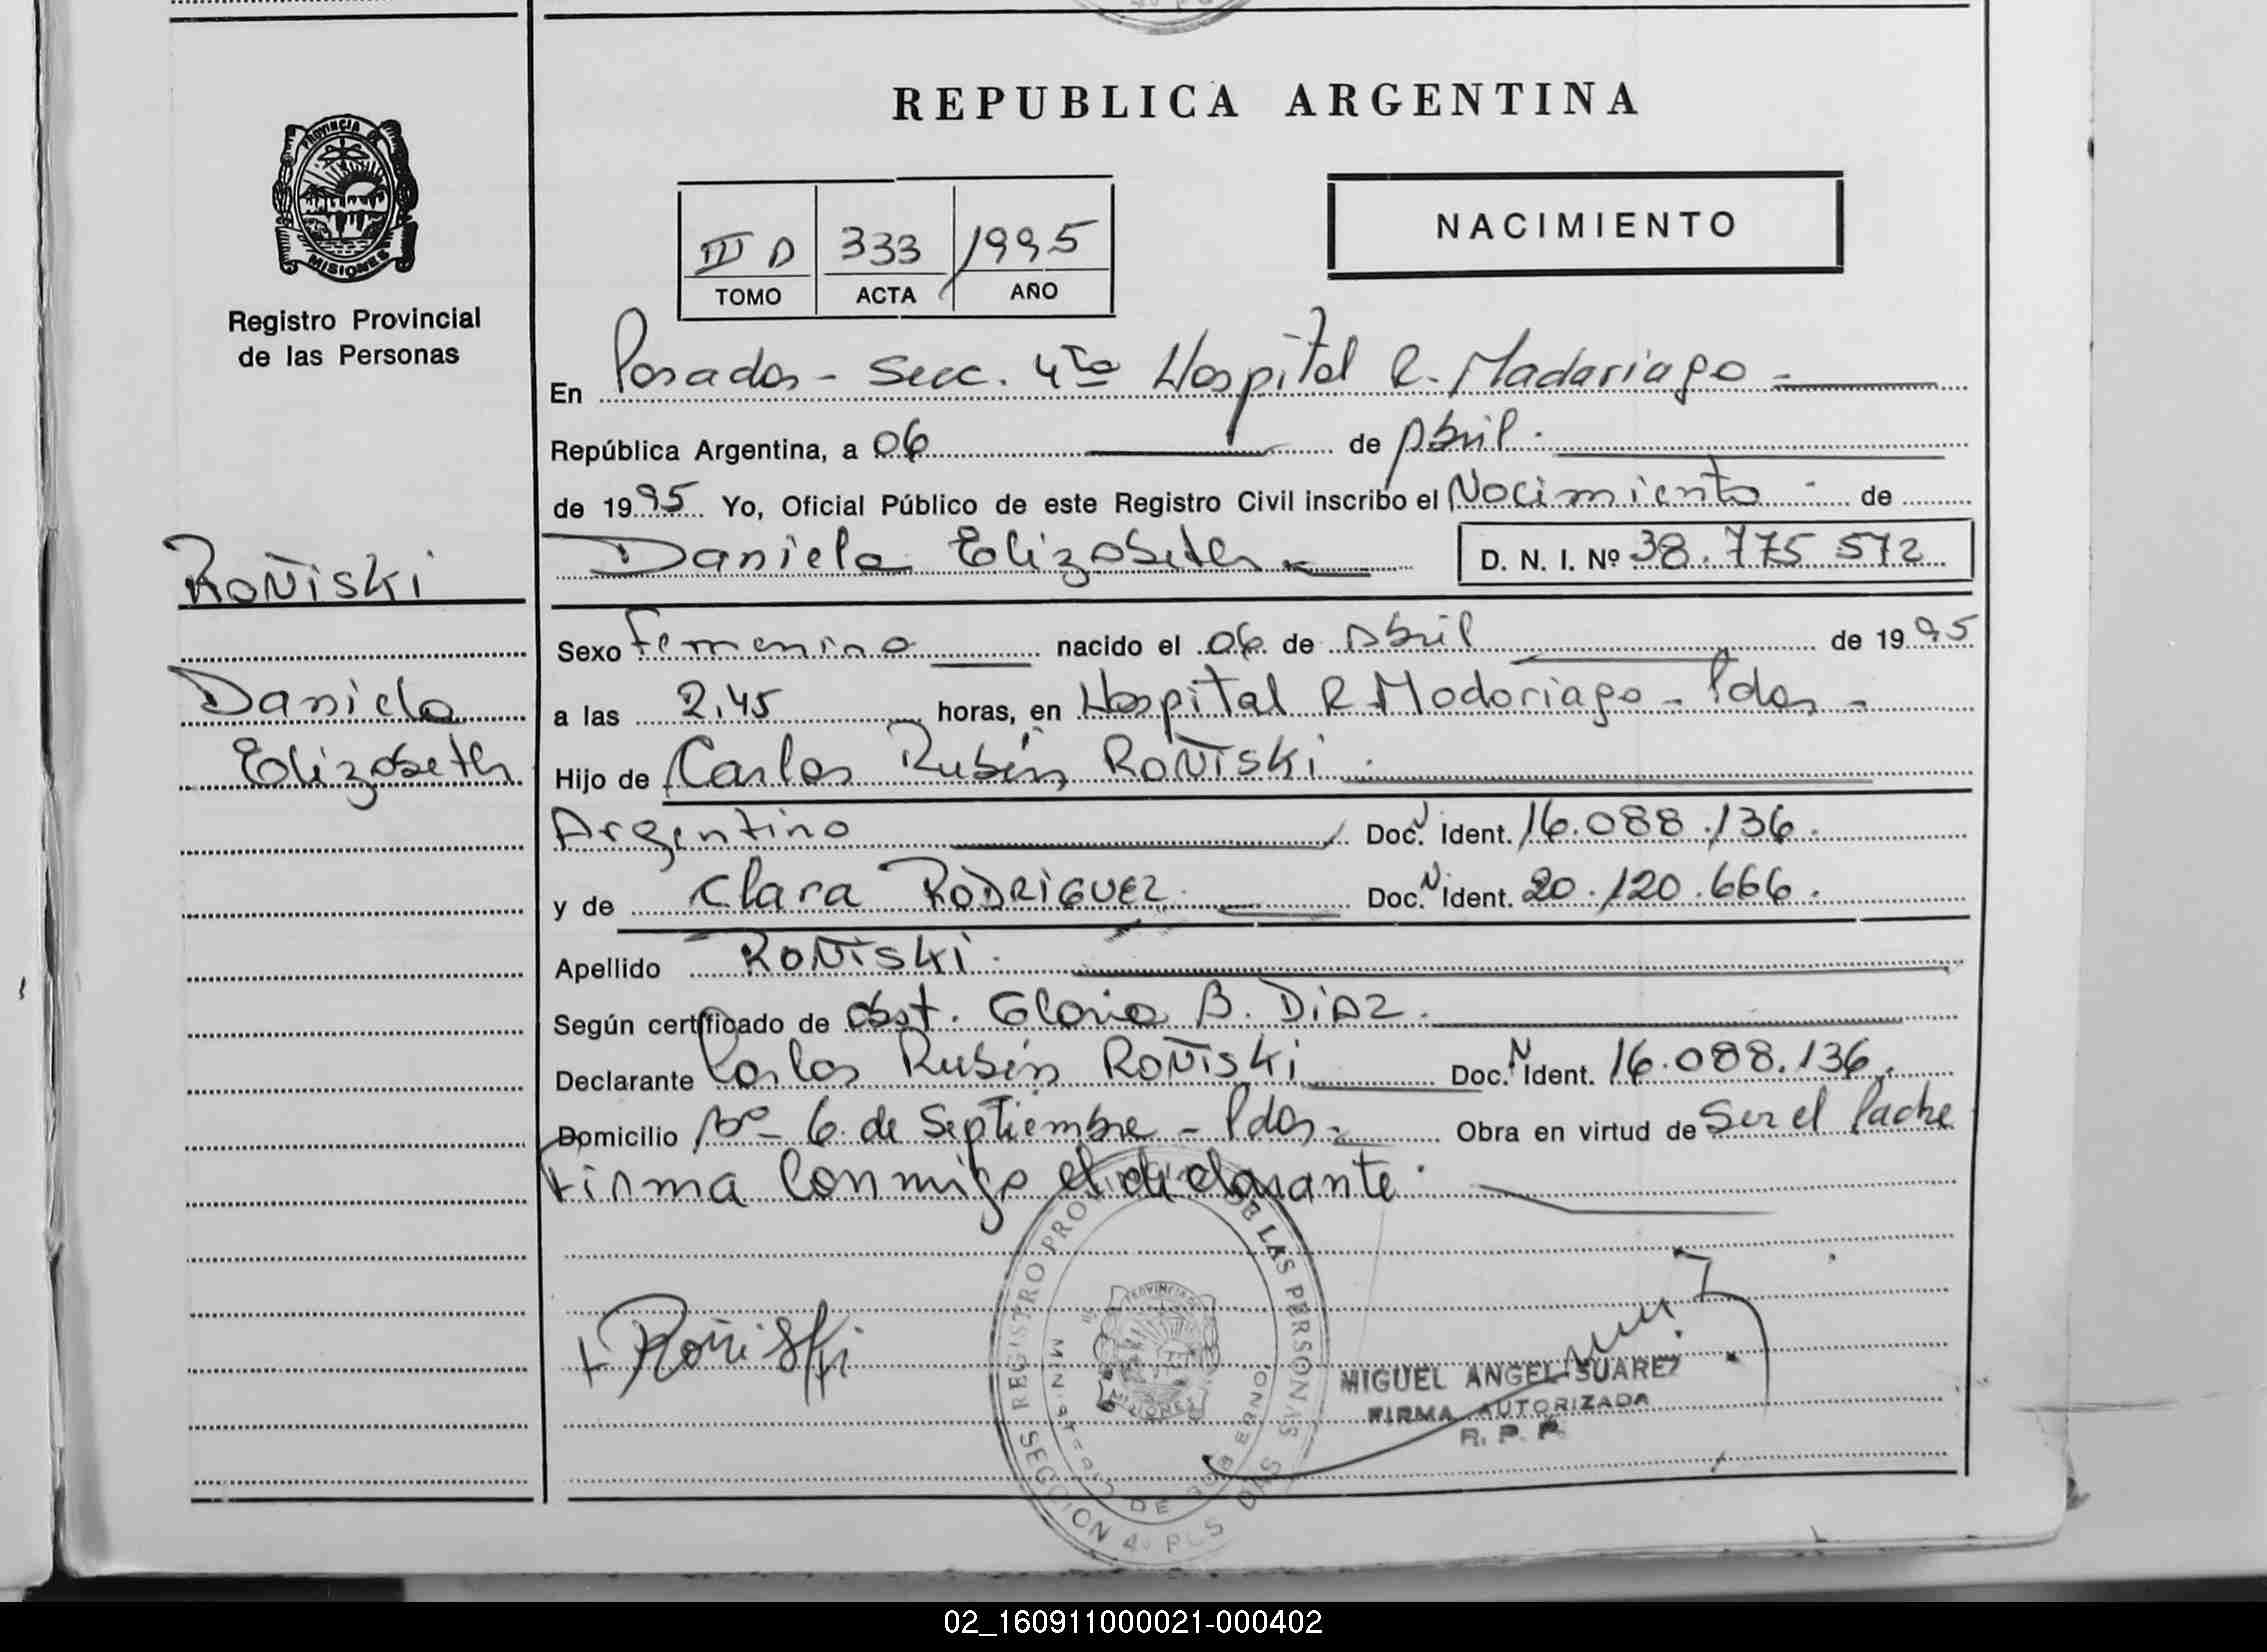 REPUBLICA ARGENTINA
PROVINCIA DE
MISIONES
Registro Provincial
de las Personas
III D 333 1995
TOMO ACTA AÑO
NACIMIENTO
En Posadas - Secc. 4ta Hospital R. Madariaga -
República Argentina, a 06 de Abril.
de 1995 Yo, Oficial Público de este Registro Civil inscribo el Nacimiento - de
Daniela Elizabeth - D. N. I. Nº 38.775 572
Roñiski
Daniela
Elizabeth
Sexo Femenino nacido el 06 de Abril de 1995
a las 2,45 horas, en Hospital R Madariaga - Pdas -
Hijo de Carlos Rubén Roñiski.
Argentino Doc. N Ident. 16.088.136.
y de Clara RODRIGUEZ. Doc. N Ident. 20.120.666.
Apellido Roñiski.
Según certificado de Obst. Gloria B. DIAZ.
Declarante Carlos Rubén Roñiski Doc. N Ident. 16.088.136.
Domicilio Bº 6 de Septiembre - Pdas - Obra en virtud de Ser el Padre
Firma Conmigo el declarante.
Roñiski
REGISTRO PROVINCIAL DE LAS PERSONAS
MINISTERIO DE GOBIERNO
SECCION 4º
MIGUEL ANGEL SUAREZ
FIRMA AUTORIZADA
R. P. P.
02_160911000021-000402